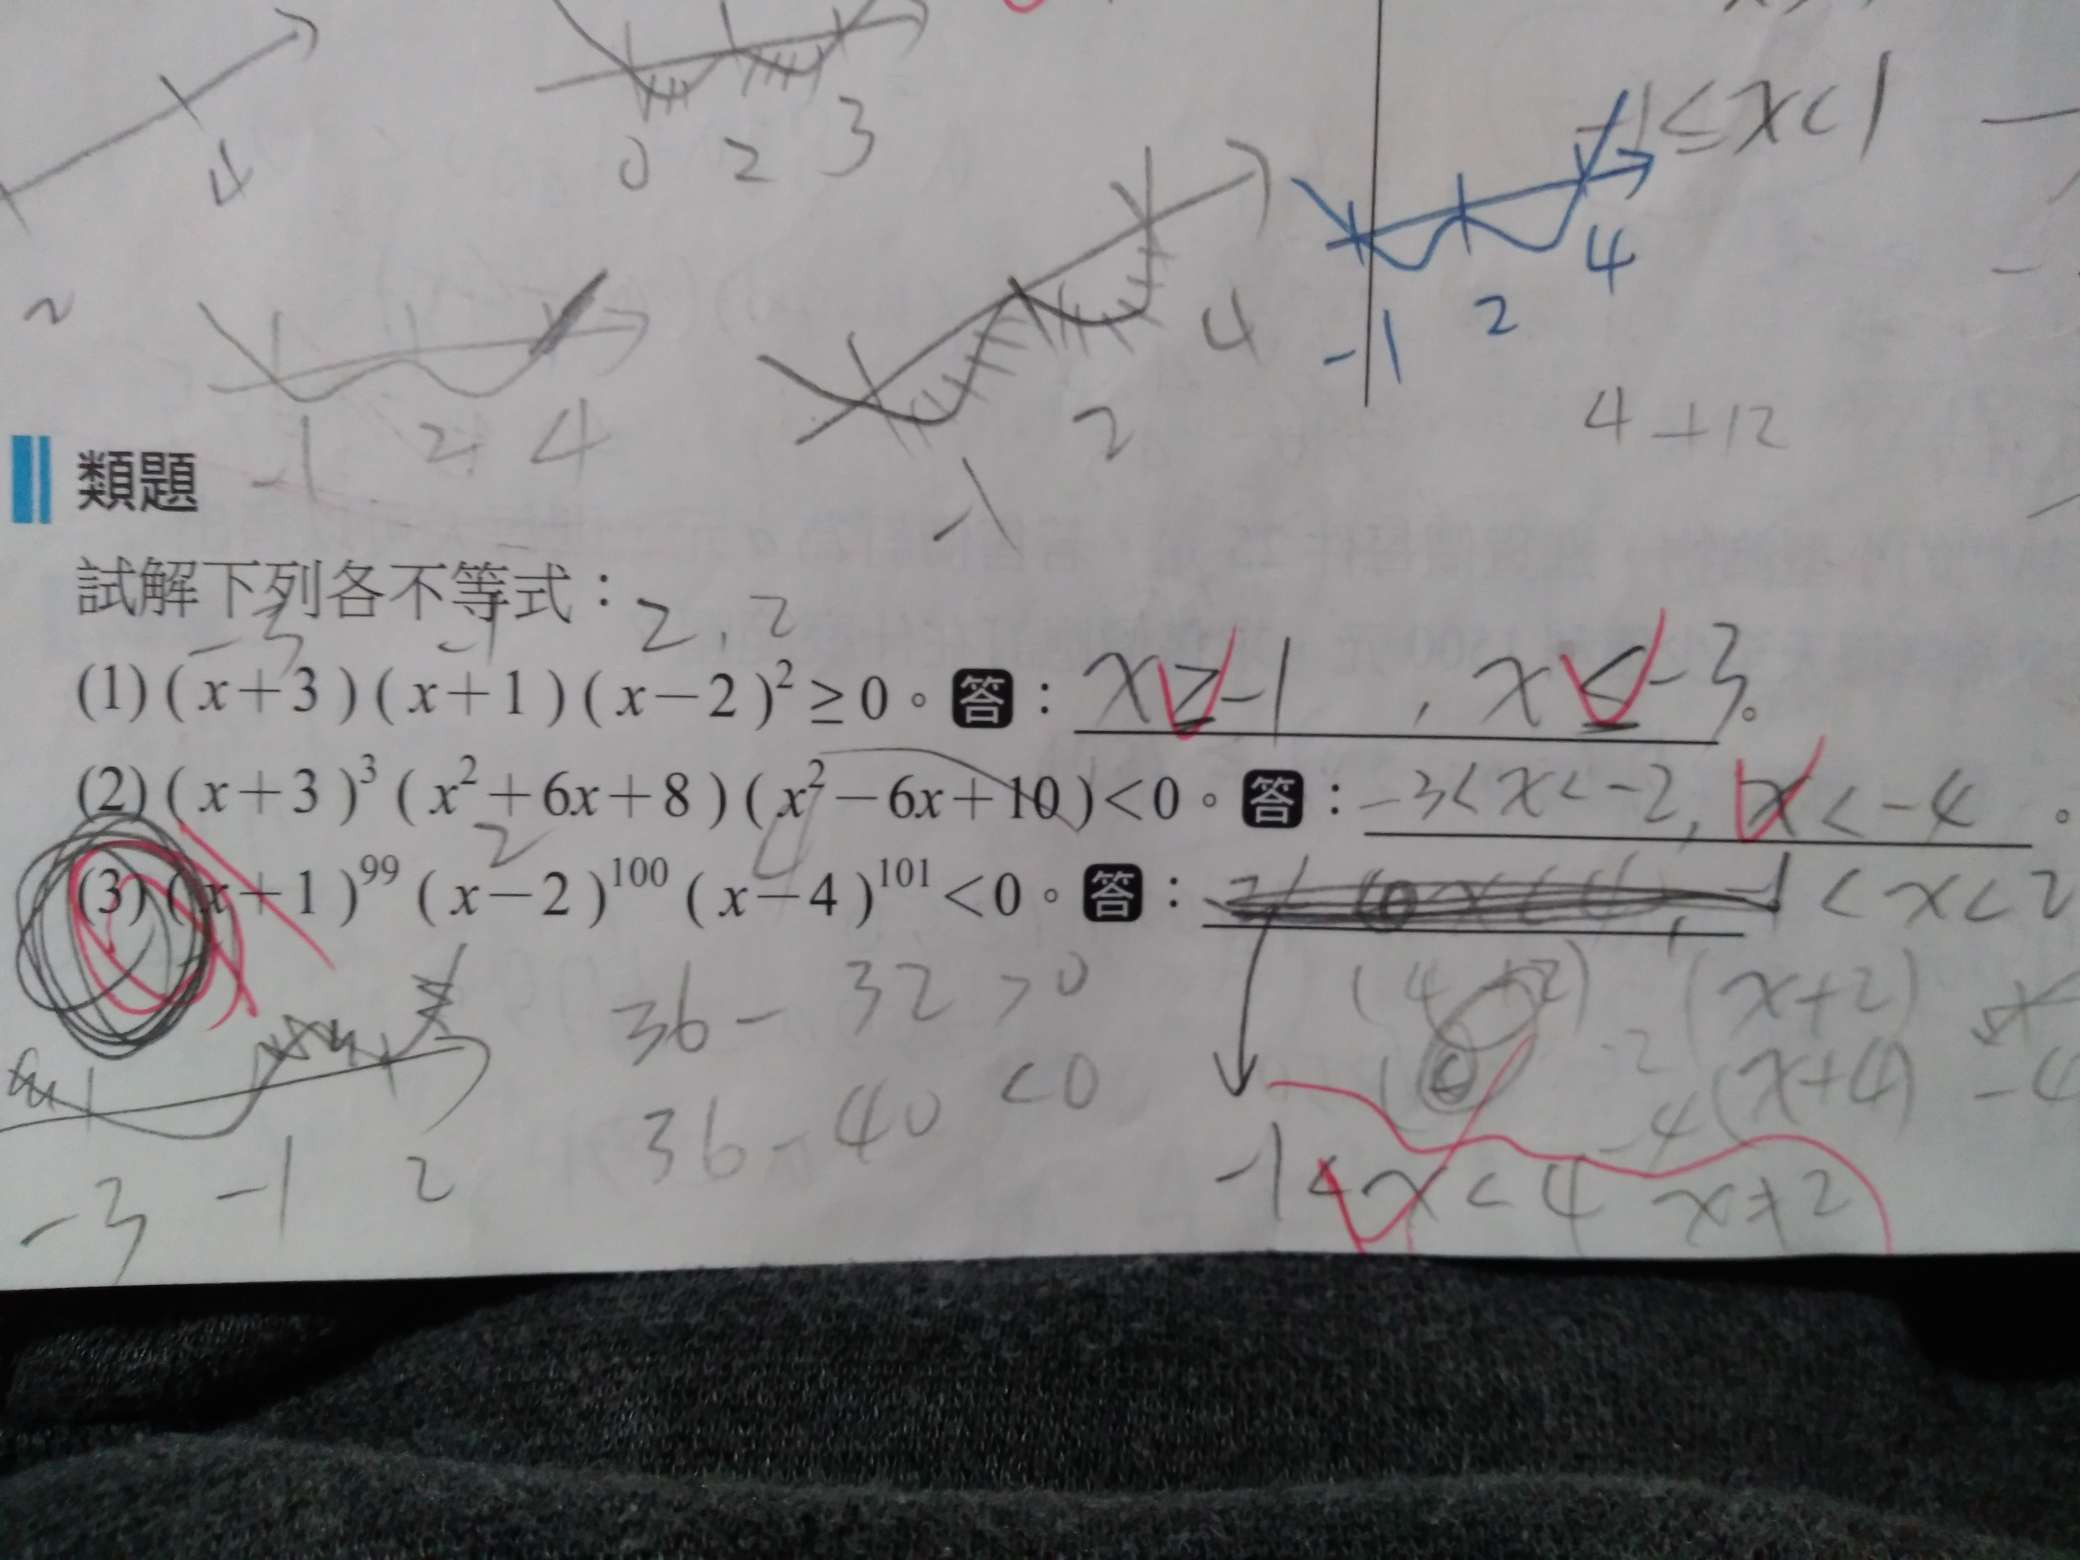 4
0 2 3
-1≤x<1
2
-1 2 4
-1 2 4
-1 2 4
4+12
類題
試解下列各不等式：
-3 -1 2,2
(1)(x+3)(x+1)(x-2)²≥0。答：x≥-1 , x≤-3。
(2)(x+3)³(x²+6x+8)(x²-6x+10)<0。答：-3<x<-2, x<-4。
2 4
(3)(x+1)⁹⁹(x-2)¹⁰⁰(x-4)¹⁰¹<0。答：-1<x<2
36-32>0
(x+2)
36-40<0
-2
(x+4) -4
-4
-3 -1 2
-1<x<4 x≠2